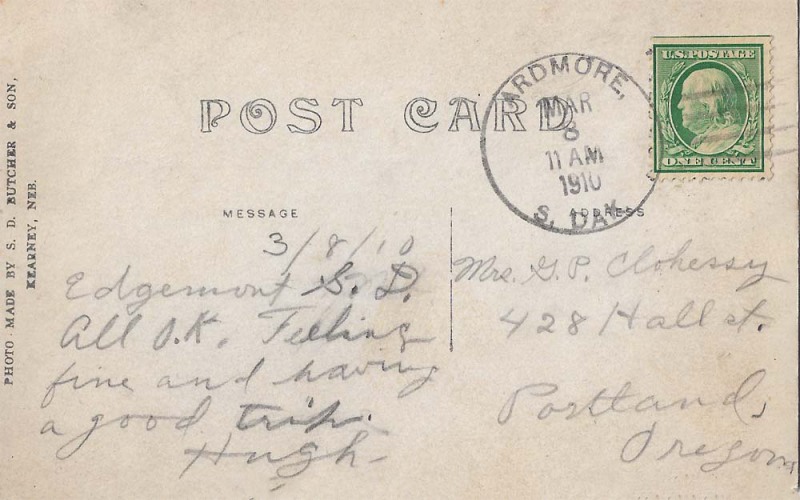 PHOTO MADE BY S. D. BUTCHER & SON,
KEARNEY, NEB.
POST CARD
ARDMORE,
MAR
8
11 AM
1910
S. DAK
U.S. POSTAGE
ONE CENT
MESSAGE
ADDRESS
3/8/10
Edgemont S.D.
All O.K. Feeling
fine and having
a good trip.
Hugh
Mrs. G.P. Clohessy
428 Hall st.
Portland,
Oregon